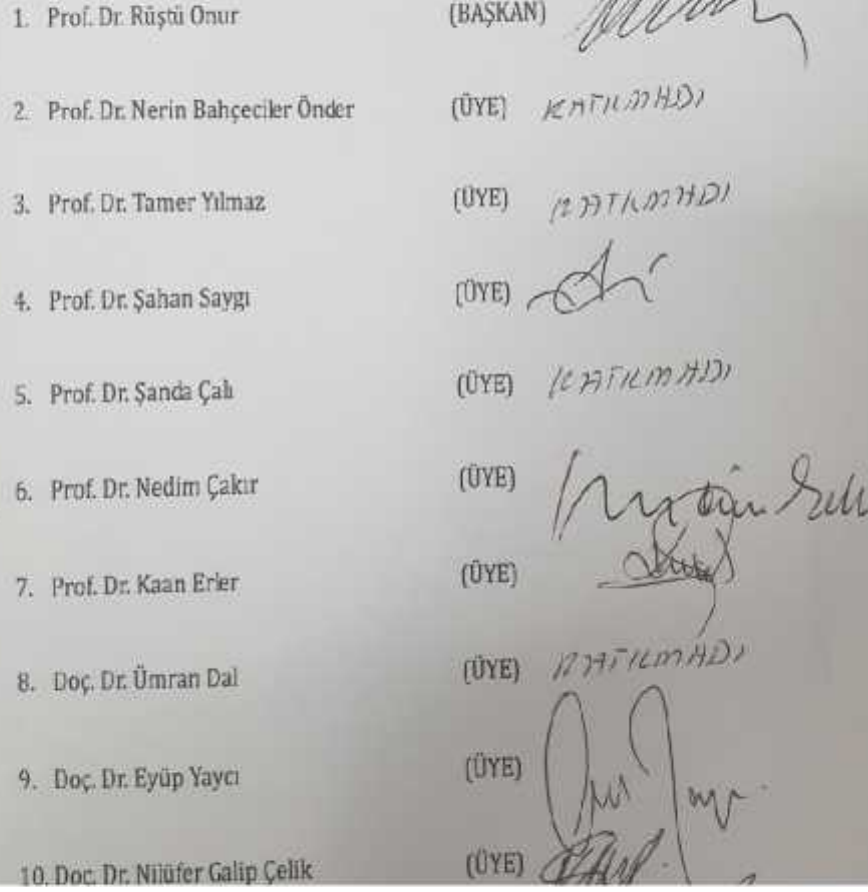 1. Prof. Dr. Rüştü Onur (BAŞKAN)
2. Prof. Dr. Nerin Bahçeciler Önder (ÜYE) KATILMADI
3. Prof. Dr. Tamer Yılmaz (ÜYE) KATILMADI
4. Prof. Dr. Şahan Saygı (ÜYE)
5. Prof. Dr. Şanda Çalı (ÜYE) KATILMADI
6. Prof. Dr. Nedim Çakır (ÜYE)
7. Prof. Dr. Kaan Erler (ÜYE)
8. Doç. Dr. Ümran Dal (ÜYE) KATILMADI
9. Doç. Dr. Eyüp Yaycı (ÜYE)
10. Doç. Dr. Nilüfer Galip Çelik (ÜYE)